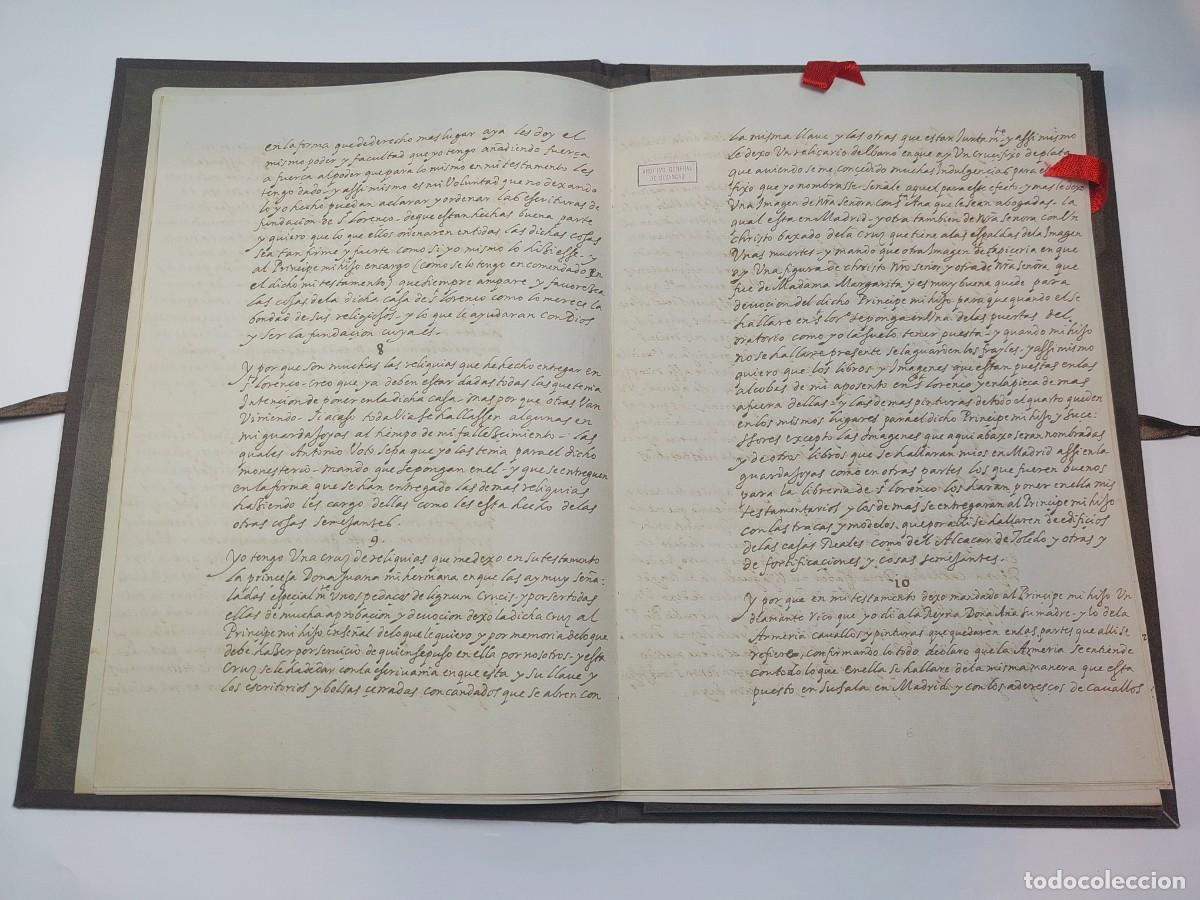 en la forma que de derecho mas lugar aya les doy el
mismo poder y facultad que yo tengo añadiendo fuerça
a fuerça al poder que para lo mismo en mi testamento les
tengo dado y assi mismo es mi Voluntad que no dexando
lo yo hecho puedan aclarar y ordenar las escrituras de
fundacion de St Lorenço de que estan hechas buena parte
y quiero que lo que ellos ordenaren en todas las dichas cosas
sea tan firme y fuerte como si yo mismo lo hiziesse y
al Principe mi hijo encargo (como se lo tengo encomendado en
el dicho mi testamento) que siempre ampare y favoresca
las cosas de la dicha casa de St Lorenço como lo merece la
bondad de sus religiosos y lo que le ayudaran con Dios
y ser la fundacion cuya es.
8
Y por que son muchas las reliquias que he hecho entregar en
St Lorenço creo que ya deben estar dadas todas las que tenia
Intension de poner en la dicha casa mas por que otras Van
Viniendo. Si acaso toda Via se hallassen algunas en
mi guardajoyas al tiempo de mi fallescimiento las
quales Antonio Voto sepa que yo las tenia para el dicho
monesterio mando que se pongan en el y que se entreguen
en la forma que se han entregado las demas reliquias
haziendo les cargo dellas como les esta hecho de las
otras cosas semejantes.
9
Yo tengo Una cruz de reliquias que me dexo en su testamento
la princesa Dona Juana mi hermana en que las ay muy seña
ladas especialmte Unos pedaços de lignum Crucis y por ser todas
ellas de mucha aprobacion y devocion dexo la dicha Cruz al
Principe mi hijo en señal de lo que le quiero y por memoria de lo que
debe haber por servicio de quien se puso en ella por nosotros y esta
Cruz se le ha de dar con la escrivania en que esta y su llave y
los escritorios y bolsas cerradas con candados que se abren con
ARCHIVO GENERAL
DE SIMANCAS
la misma llave y las otras que estan Juntamte y assi mismo
le dexo Un relicario de ebano en que ay Un Crucifixo de plata
que aviendo se me concedido muchas Indulgencias para el
fixo que yo nombrasse señale aquel para esse efecto y mas le dexo
Una Imagen de Nra Señora con Sta Ana que le sean abogadas. la
qual esta en Madrid y otra tambien de Nra Señora con Un
christo baxado de la Cruz que tiene a las espaldas de la Imagen
Unas muertes y mando que otra Imagen de tapiceria en que
ay Una figura de christo Nro Señor y otra de Nra Señora que
fue de Madama Margarita y es muy buena quede para
devocion del dicho Principe mi hijo para que quando el se
hallare en St Lorço se ponga en Una de las puertas del
oratorio como yo la suelo tener puesta y quando mi hijo
no se hallare presente se la guarden los frayles. y assi mismo
quiero que los libros y Imagenes que estan puestas en las
alcobas de mi aposento en St Lorenço y en la pieça de mas
afuera dellas y las demas pinturas de todo el quarto queden
en los mismos lugares para el dicho Principe mi hijo y suce-
ssores excepto las Imagenes que aqui abaxo seran nombradas
y de otros libros que se hallaran mios en Madrid assi en la
guardajoyas como en otras partes los que fueren buenos
para la libreria de St Lorenço los haran poner en ella mis
testamentarios y los demas se entregaran al Principe mi hijo
con las traças y modelos que por alli se hallaren de edificios
de las casas Reales como del Alcaçar de Toledo y otras y
de fortificaciones y cosas semejantes.
10
Y por que en mi testamento dexo mandado al Principe mi hijo Un
diamante rico que yo di a la Reyna Dona Ana su madre y lo de la
Armeria cavallos y pinturas que quedaren en las partes que alli se
refiere, confirmando lo todo declaro que la Armeria se entiende
con todo lo que en ella se hallare de la misma manera que esta
puesto en su sala en Madrid y con los adereços de cavallos
6
todocoleccion